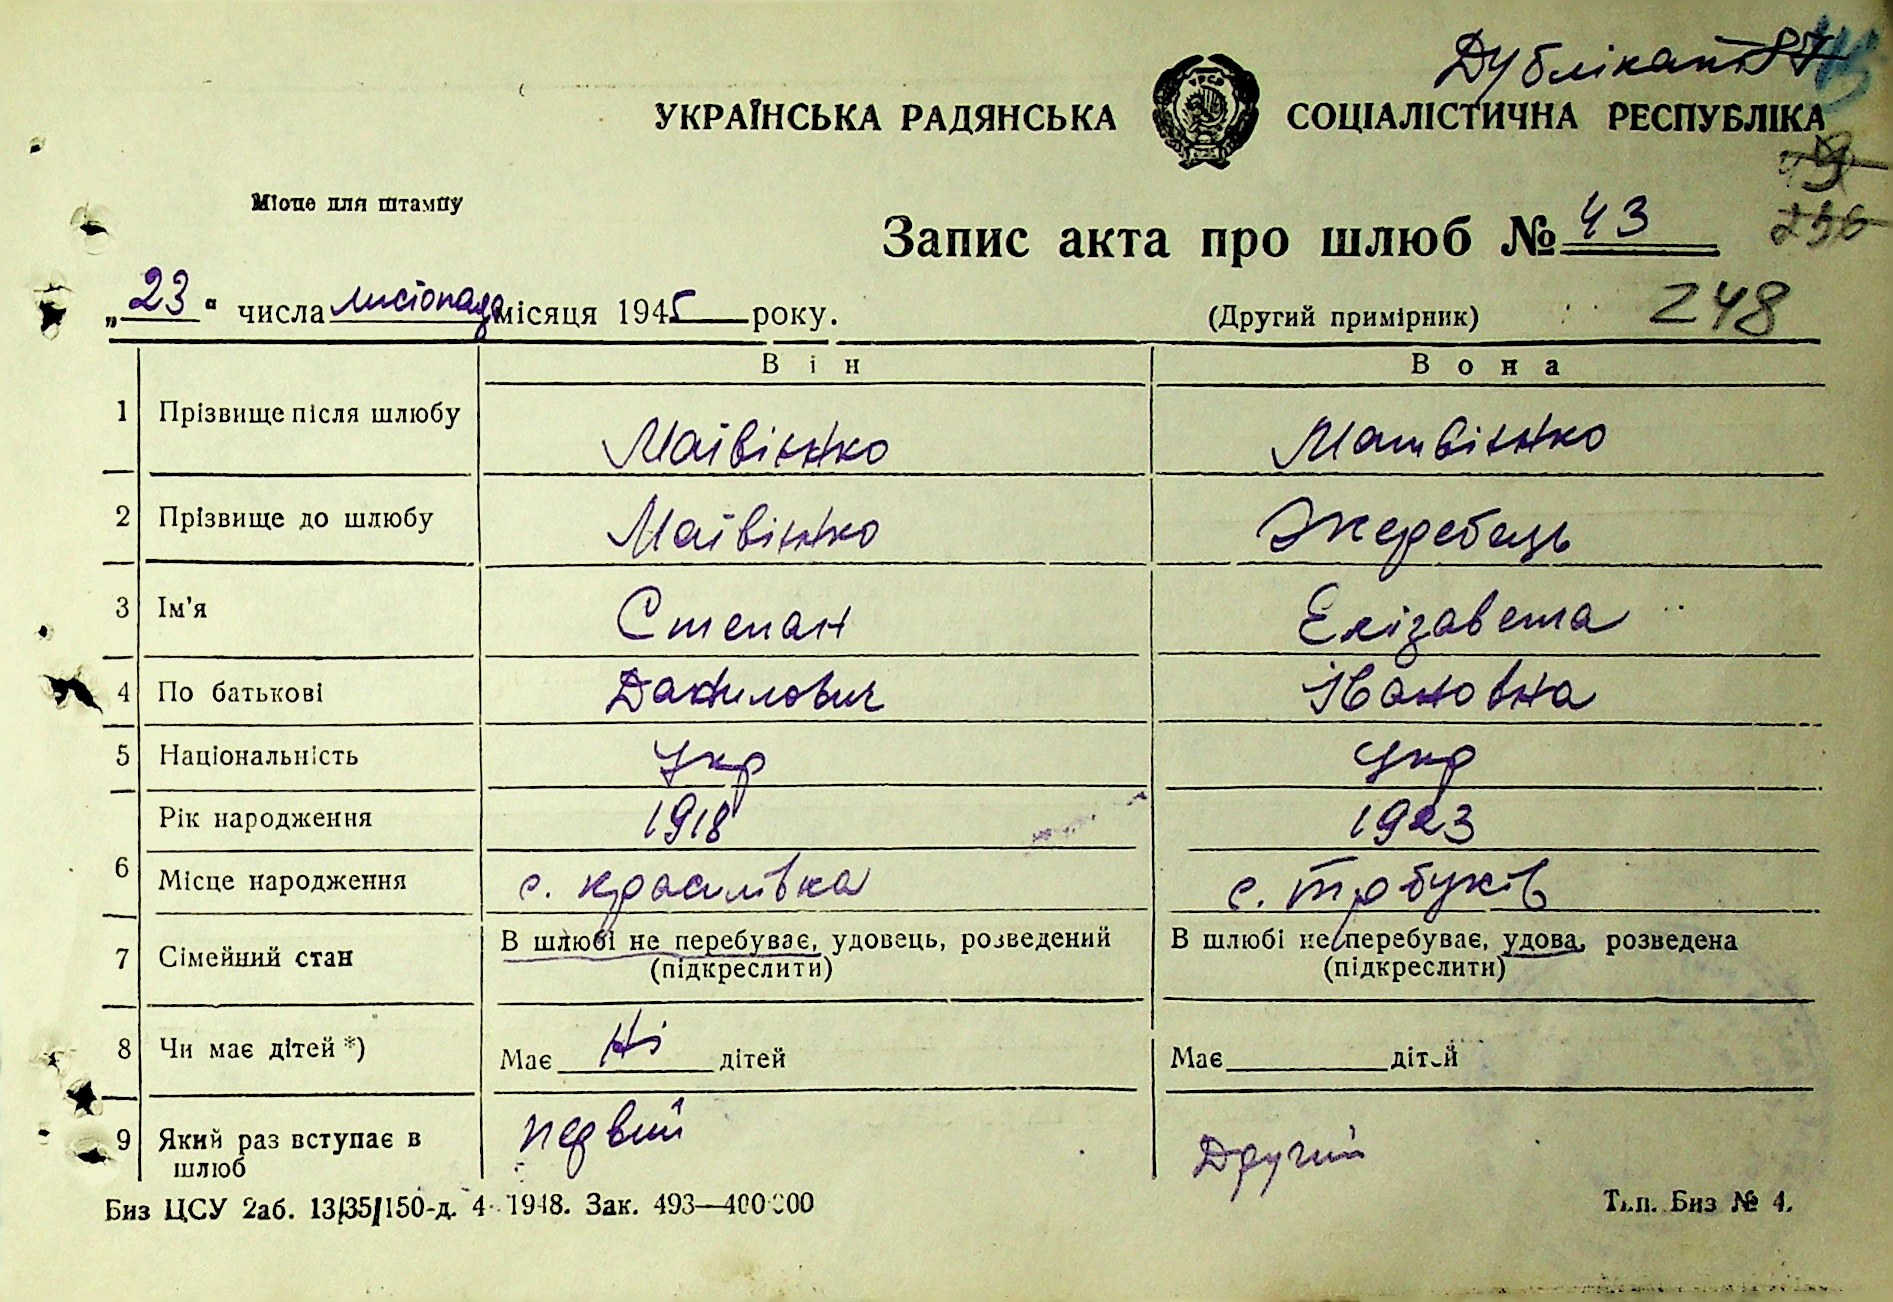 Дублікат 87
УКРАЇНСЬКА РАДЯНСЬКА СОЦІАЛІСТИЧНА РЕСПУБЛІКА
Місце для штампу
Запис акта про шлюб № 43
256
„23“ числа листопада місяця 1945 року.
(Другий примірник) 248
Він Вона
1 Прізвище після шлюбу Матвієнко Матвієнко
2 Прізвище до шлюбу Матвієнко Жеребець
3 Ім'я Степан Елізавета
4 По батькові Данилович Івановна
5 Національність Укр Укр
Рік народження 1918 1923
6 Місце народження с. Красилівка с. Требухів
7 Сімейний стан В шлюбі не перебуває, удовець, розведений В шлюбі не перебуває, удова, розведена
(підкреслити) (підкреслити)
8 Чи має дітей *) Має Ні дітей Має дітей
9 Який раз вступає в шлюб первий Другий
Биз ЦСУ 2аб. 13/35/150-д. 4 1948. Зак. 493—400000 Тип. Биз № 4.